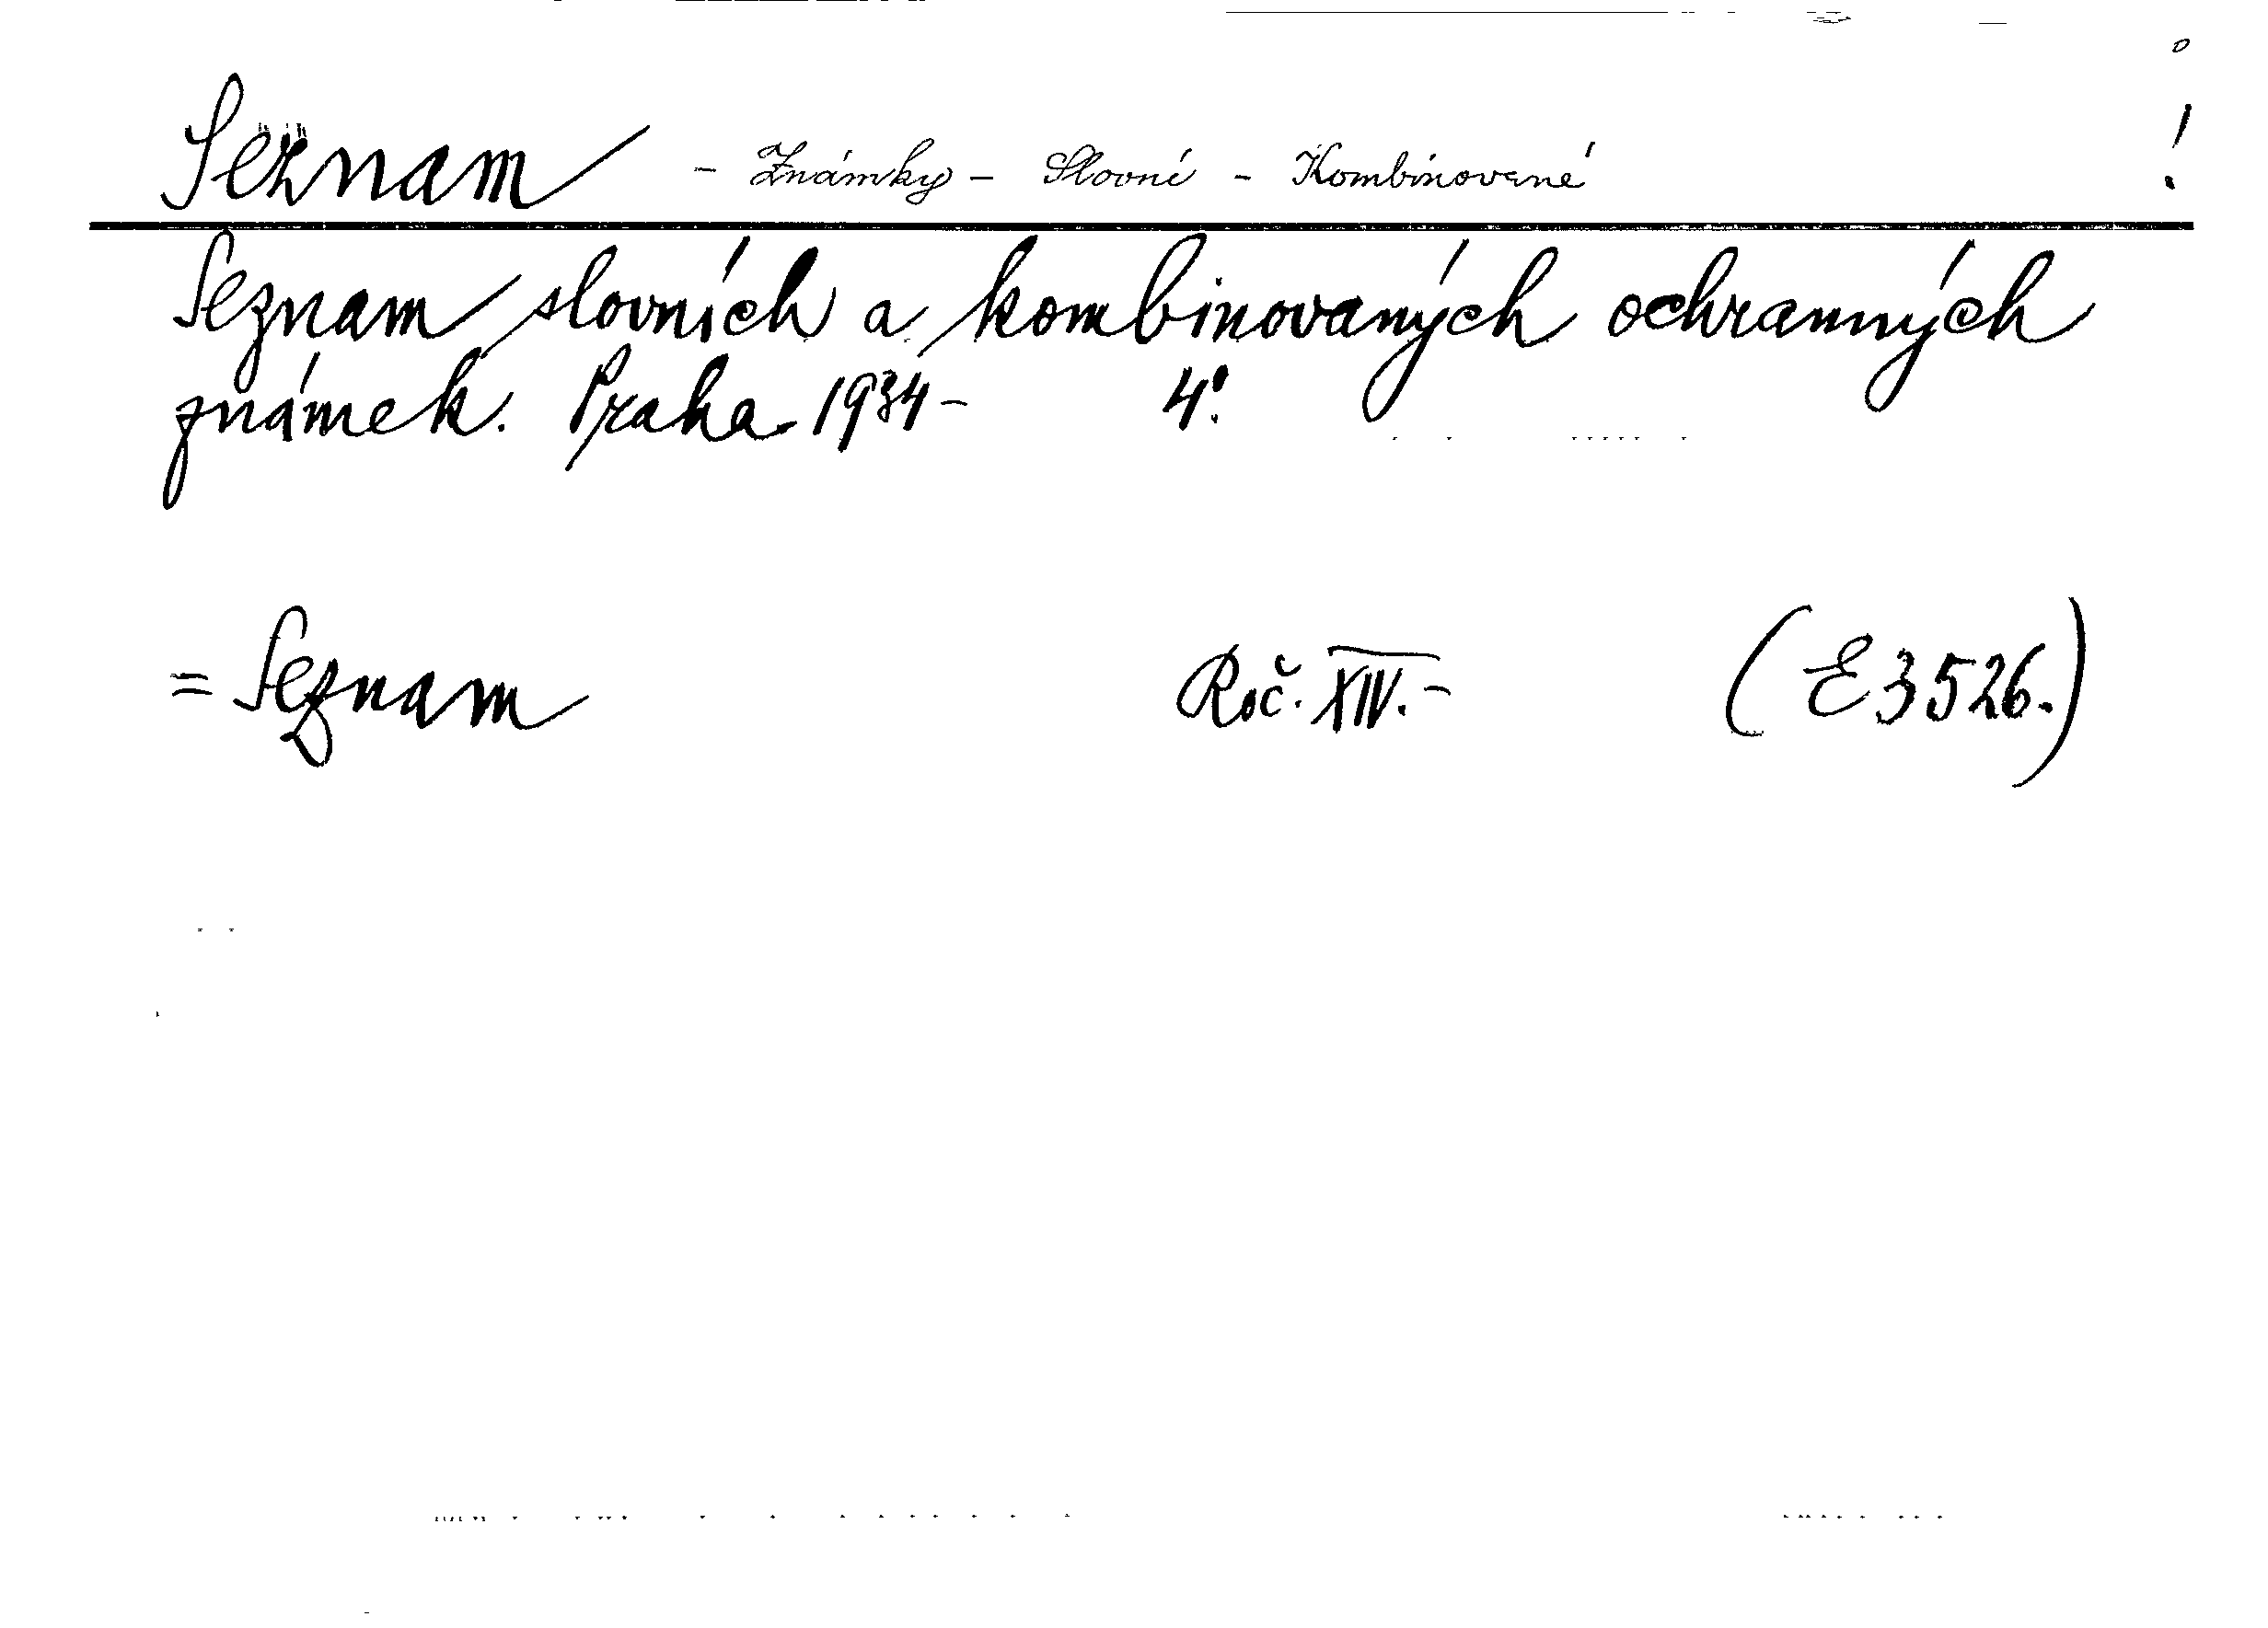 Seznam - Známky - Slovní - Kombinované !
Seznam slovních a kombinovaných ochranných
známek. Praha 1934- 4°.
= Seznam Roč. XIV.- (E 3526.)